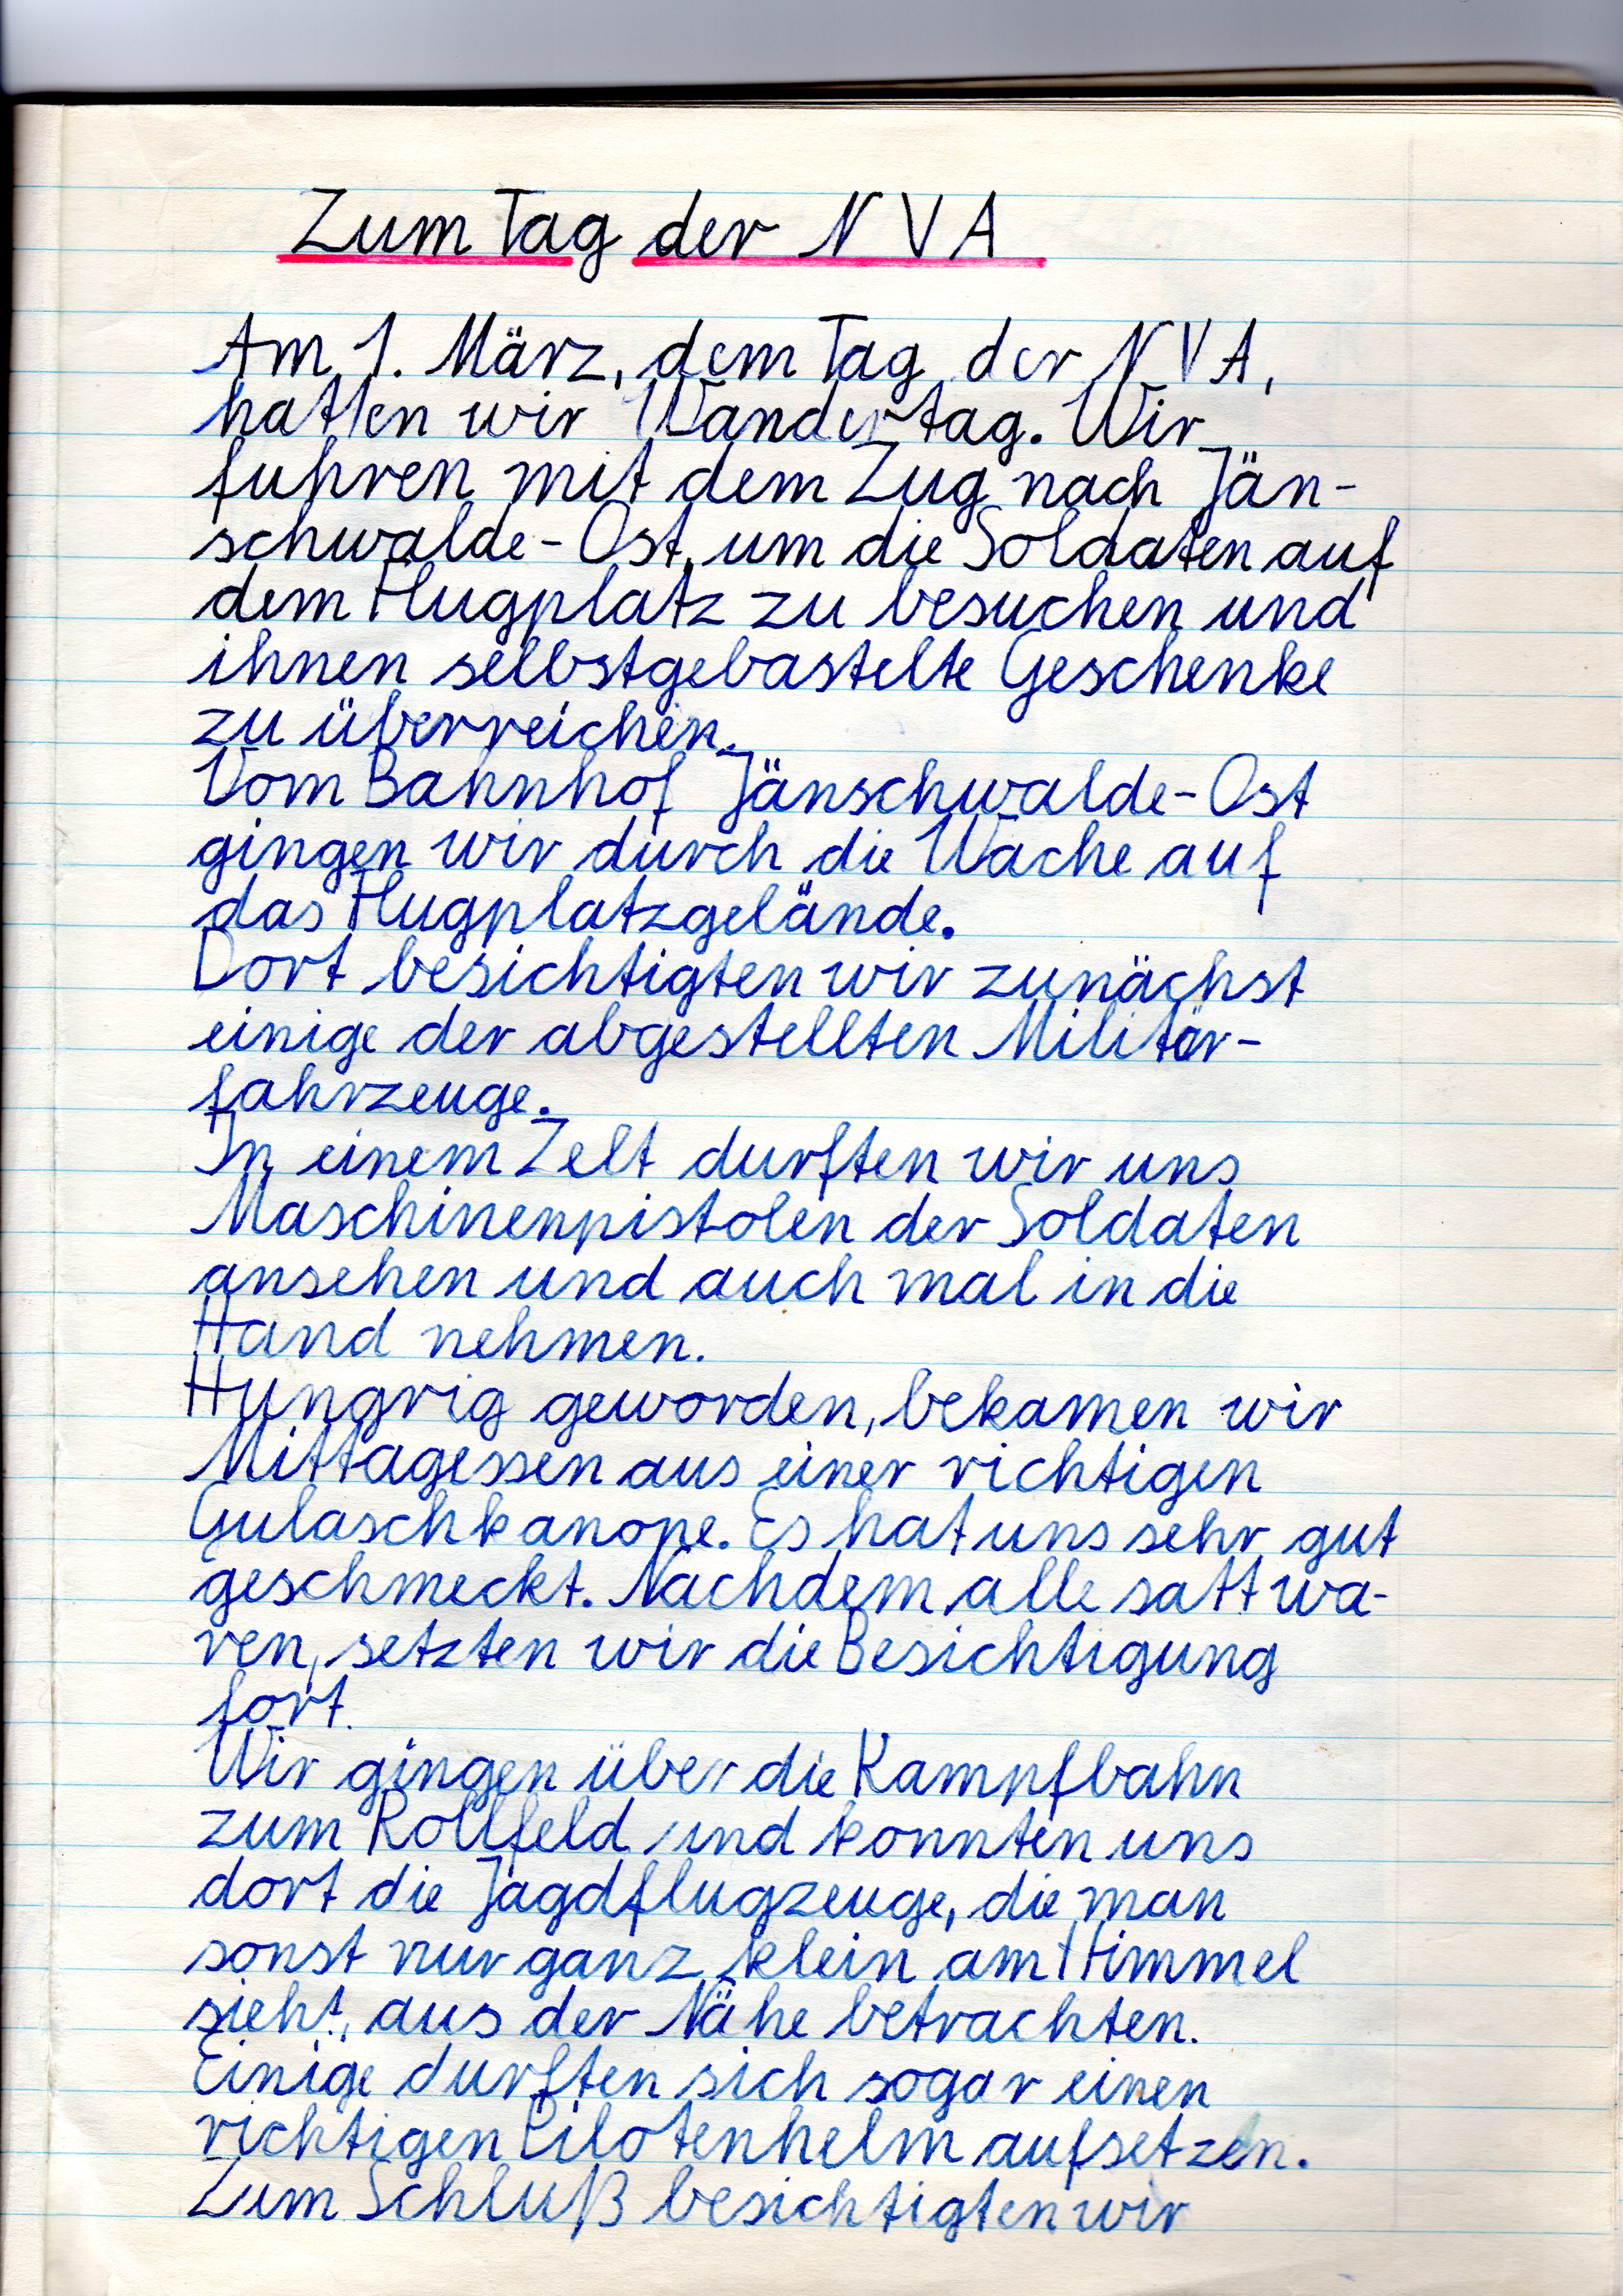 Zum Tag der NVA
Am 1. März, dem Tag der NVA,
hatten wir Wandertag. Wir
fuhren mit dem Zug nach Jän-
schwalde-Ost, um die Soldaten auf
dem Flugplatz zu besuchen und
ihnen selbstgebastelte Geschenke
zu überreichen.
Vom Bahnhof Jänschwalde-Ost
gingen wir durch die Wache auf
das Flugplatzgelände.
Dort besichtigten wir zunächst
einige der abgestellten Militär-
fahrzeuge.
In einem Zelt durften wir uns
Maschinenpistolen der Soldaten
ansehen und auch mal in die
Hand nehmen.
Hungrig geworden, bekamen wir
Mittagessen aus einer richtigen
Gulaschkanone. Es hat uns sehr gut
geschmeckt. Nachdem alle satt wa-
ren, setzten wir die Besichtigung
fort.
Wir gingen über die Kampfbahn
zum Rollfeld und konnten uns
dort die Jagdflugzeuge, die man
sonst nur ganz klein am Himmel
sieht, aus der Nähe betrachten.
Einige durften sich sogar einen
richtigen Pilotenhelm aufsetzen.
Zum Schluß besichtigten wir